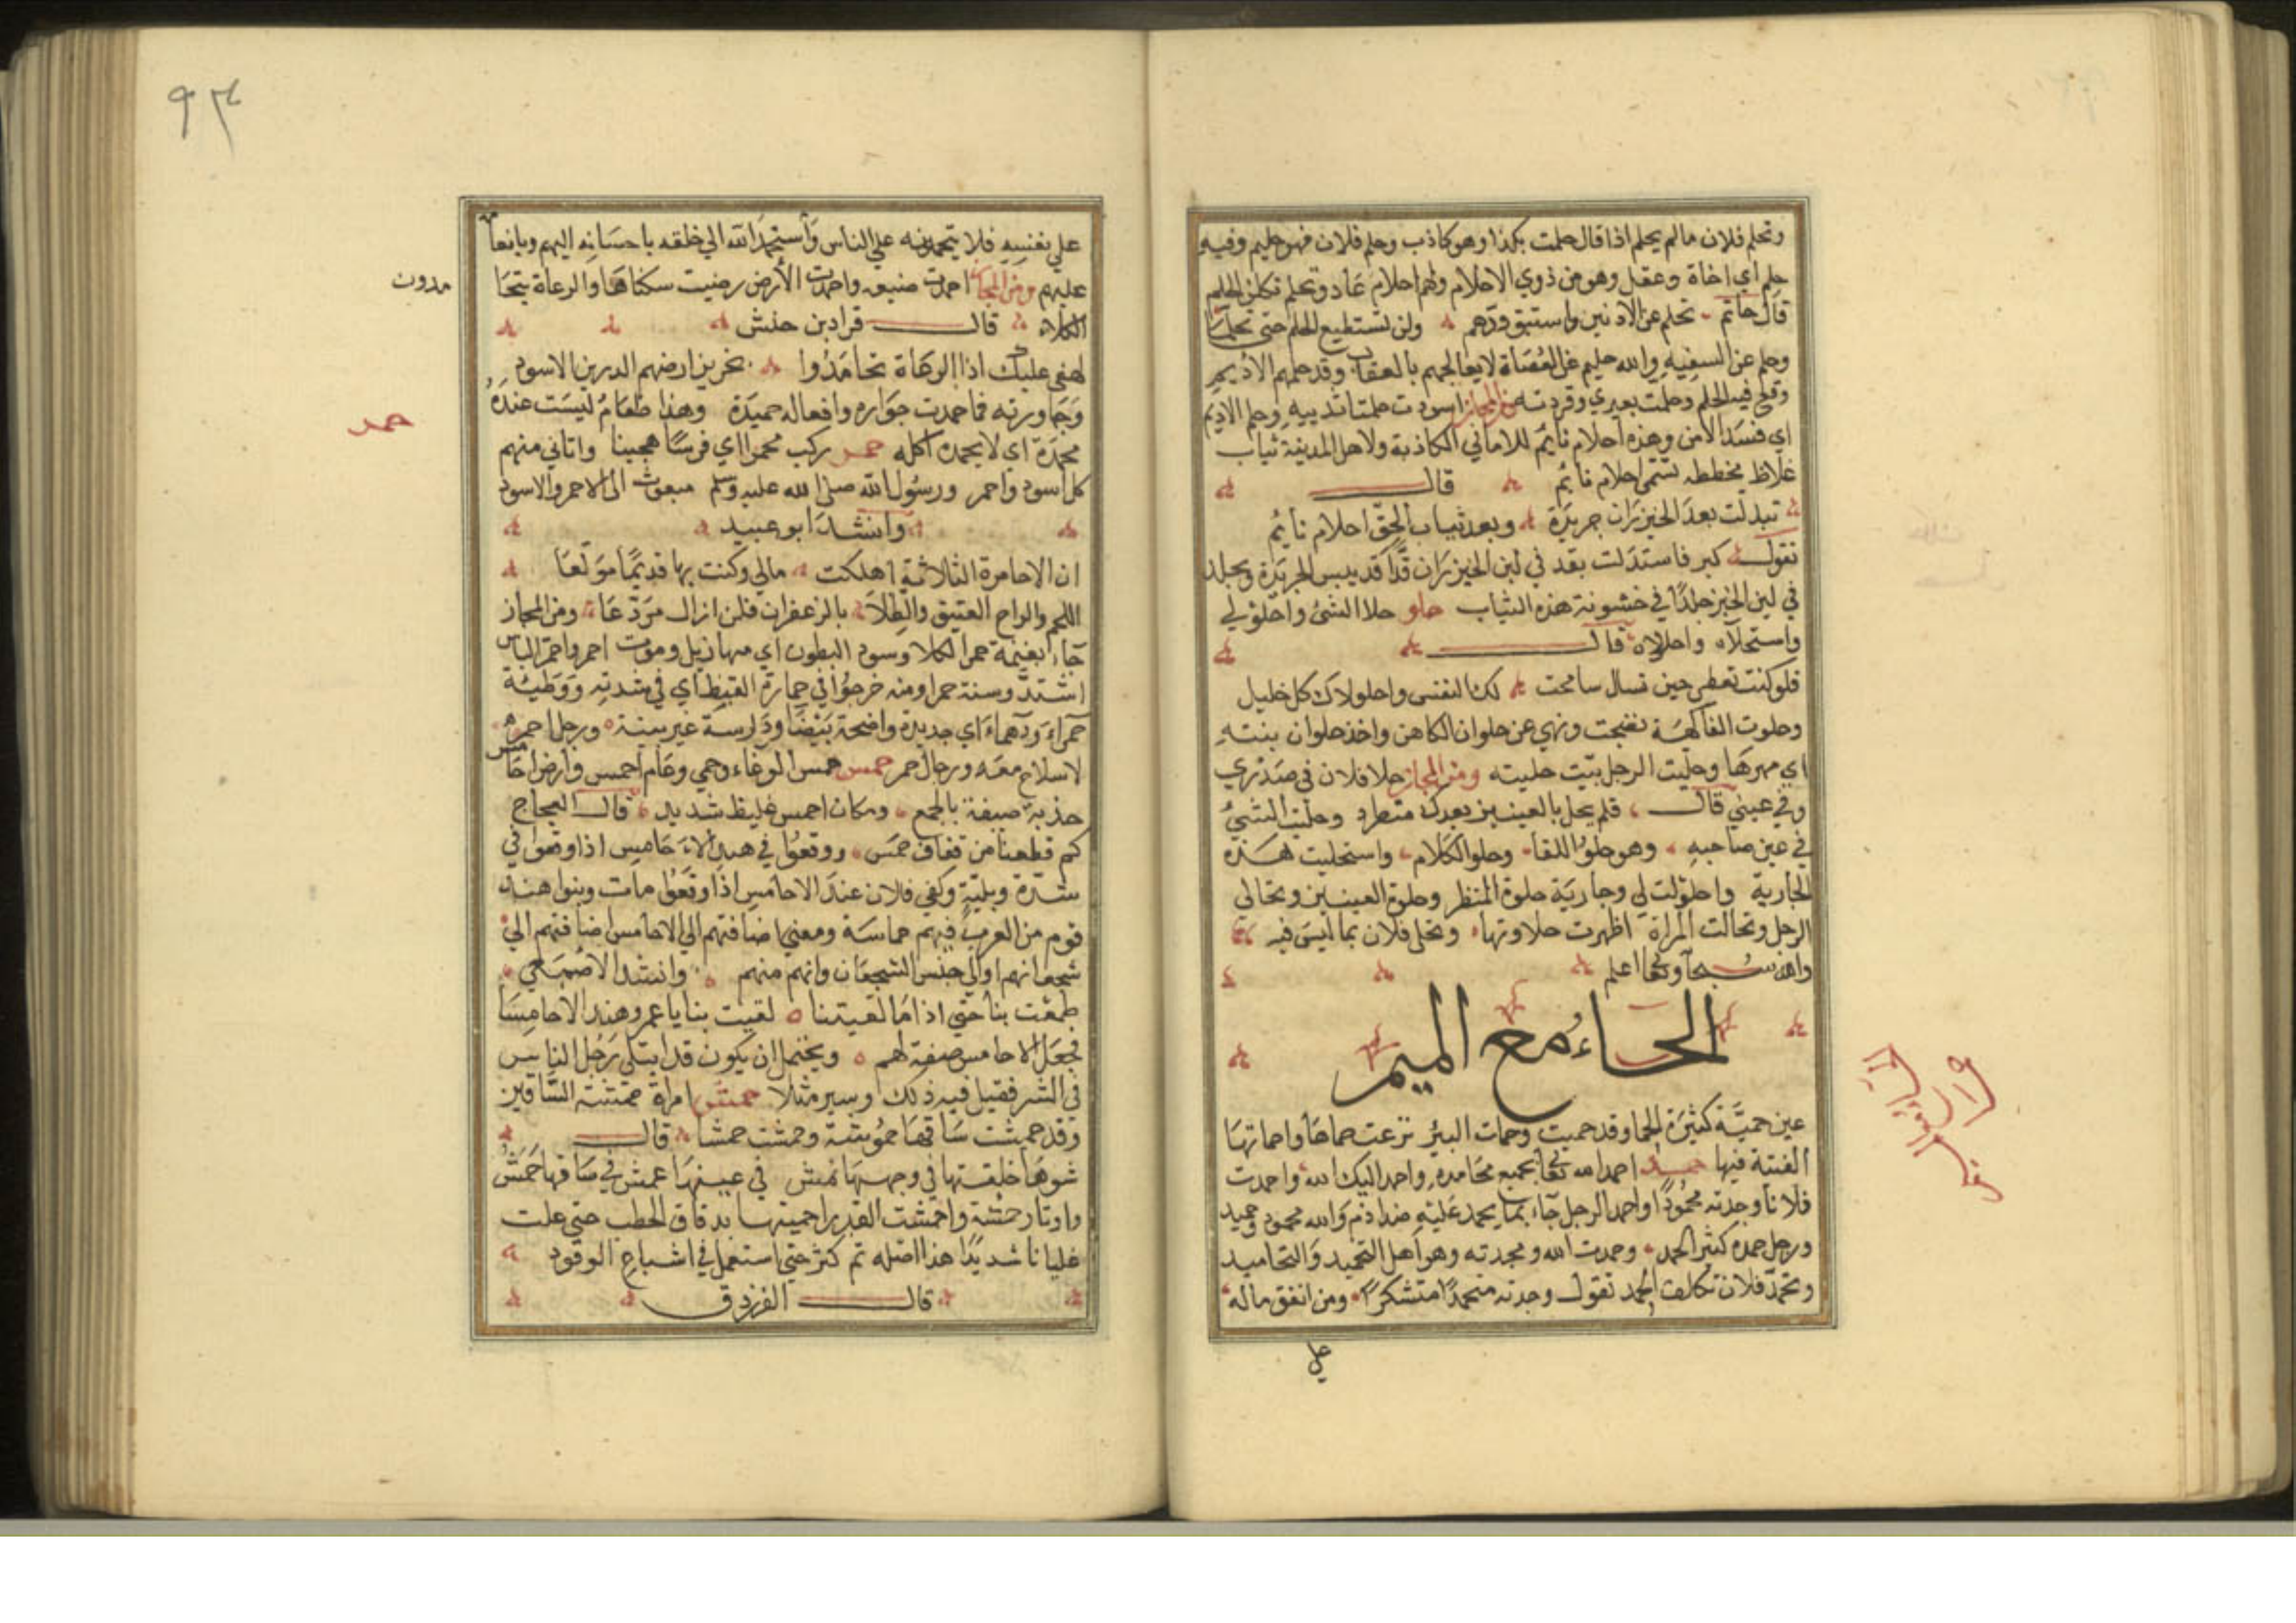 وتحلم فلان مالم يحلم اذا قال حلمت بكذا وهو كاذب وحلم فلان فهو حليم وفيه
حلم اي اناة وعقل وهو من ذوي الاحلام ولهم احلام عاد وتحلم تكلف الحلم
قال حاتم تحلم عن الادنين واستبق ودهم ولن تستطيع الحلم حتى تحلما
وحلم عن السفيه والله حليم عن العصاة لا يعالجهم بالعقاب وقد حلم الاديم
وقع فيه الحلم وحلمت بعيري وقردته ومن المجاز اسودت حلمتا ثدييه وحلم الاديم
اي فسد الامر وهذه احلام نايم للاماني الكاذبة ولاهل المدينة ثياب
غلاظ مخططه تسمى احلام نايم قال
تبدلت بعد الخيزران جريدة وبعد ثياب الخز احلام نايم
تقول كبر فاستدلت بقد في لين الخيزران قدا قد يبس الجريدة وبجلد
في لين الخز جلدا في خشونة هذه الثياب حلو حلا الشئ واحلولي
واستحلاه واحلولاه قال
فلو كنت تعطي حين تسال سامحت لك النفس واحلولاك كل خليل
وحلوت الفاكهة نضجت ونهي عن حلوان الكاهن واخذ حلوان بنته
اي مهرها وحليت الرجل بيت حليته ومن المجاز حلا فلان في صدري
وفي عيني قال فلم يحل بالعينين بعدك منظر وحليت الشئ
في عين صاحبه وهو حلو اللقا وحلو الكلام واستحليت هذه
الجارية واحلولت لي وجارية حلوة المنظر وحلوة العينين وتحالي
الرجل وتحالت المراة اظهرت حلاوتها وتحلى فلان بما ليس فيه
والله سبحانه وتعالى اعلم
الحاء مع الميم
عين حمئة كثيرة الحما وقد حميت وحمات البئر نزعت حماها واحماتها
القيته فيها حمد احمد الله تعالى بجميع محامده واحمد اليك الله واحمدت
فلانا وجدته محمودا واحمد الرجل جاء بما يحمد عليه ضد اذم والله محمود وحميد
ورجل حمده كثير الحمد وحمدت الله ومجدته وهو اهل التحميد والتحاميد
وتحمد فلان تكلف الحمد تقول وجدته متحمدا متشكرا ومن انفق ماله
علي
٩٣
علي نفسه فلا يتحمد به علي الناس واستحمد الله الي خلقه باحسانه اليهم وبانعا
عليهم ومن المجاز احمدت صنيعه واحمدت الأرض رضيت سكناها والرعاة يتحا
مدون
الكلاء قال قراد بن حنش
لهفي عليك اذا الرعاة تحامدوا بحزيز ارضهم الدرين الاسود
وجاورته فما حمدت جواره وافعاله حميدة وهذا طعام ليست عنده
محمدة اي لا يحمده اكله حمر ركب محمرا اي فرسا هجينا واتاني منهم
حمر
كل اسود واحمر ورسول الله صلى الله عليه وسلم مبعوث الى الاحمر والاسود
وانشد ابو عبيد
ان الاحامرة الثلاثة اهلكت مالي وكنت بها قديما مولعا
اللحم والراح العتيق والطلا بالزعفران فلن ازال مردعا ومن المجاز
جاء بغنيمة حمر الكلا وسود البطون اي مهازيل وموت احمر واحمر الباس
اشتد وسنة حمرا ومنه خرجوا في حمارة القيظ اي في شدته ووطئة
حمراء ودهماء اي جديدة واضحة بيضا ودارسة غير بينة ورجل احمر
لا سلاح معه ورجال حمر حمس حمس الوغاء وحمي وعام احمس وارض احامس
جذبة صيفة بالجمع ومكان احمس غليظ شديد قال العجاج
كم قطعنا من قفاف حمس ووقعوا في هند الاحامس اذا وقعوا في
شدة وبلية وكفي فلان عند الاحامس اذا وقعوا مات وبنوا هند
قوم من العرب فيهم حماسة ومعني اضافتهم الي الاحامس اضافتهم الي
شجعانهم اوالي جنس الشجعان وانهم منهم وانشد الاصمعي
طمعت بنا حتى اذا ما لقيتنا لقيت بنا يا عمرو هند الاحامسا
فجعل الاحامس صفة لهم ويحتمل ان يكون قد ابتلى رجل الناس
في الشر فقيل فيه ذلك وسير مثلا حمش امراة حمشة الساقين
وقد حمشت ساقها حموشة وحمشت حمشا قال
شوها خلقتها في وجهها نمش في عينها عمش في ساقها حمش
واوتار حمشة واحمشت القدر احميتها بدقاق الحطب حتى علت
غليانا شديدا هذا اصله ثم كثر حتي استعمل في اشباع الوقود
قال الفرزدق